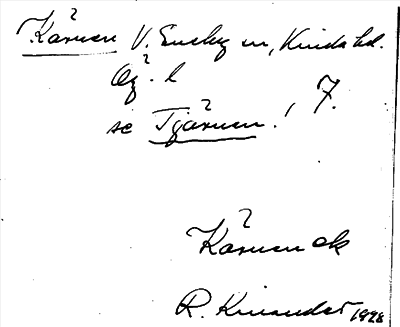 Kärnen V. Eneby sn, Kinda hd.
Ög. l
se Tjärnen! 7.
Kärnen ek
R. Kinander 1928